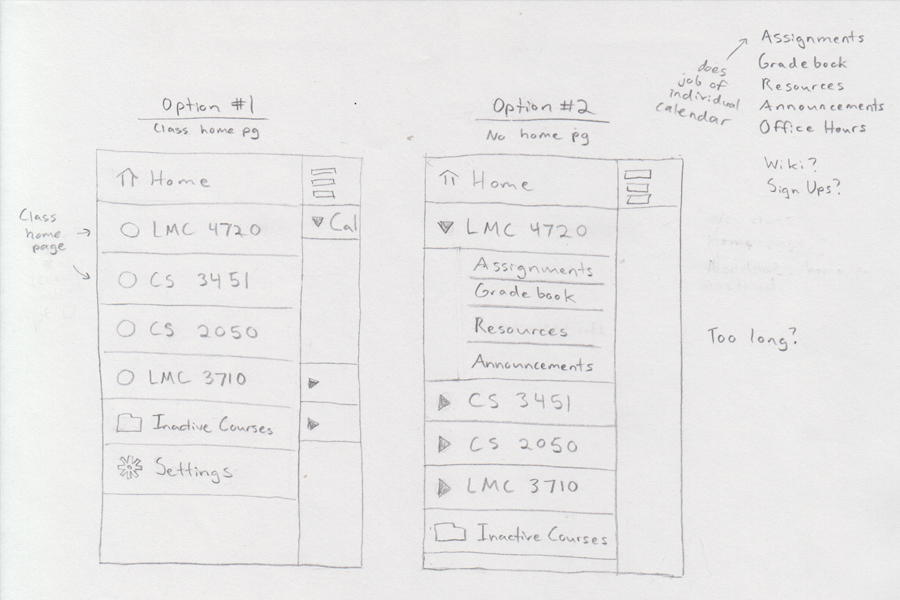 Option #1
Class home pg
Home
Cal
LMC 4720
CS 3451
CS 2050
LMC 3710
Inactive Courses
Settings
Class
home
page
Option #2
No home pg
Home
LMC 4720
Assignments
Gradebook
Resources
Announcements
CS 3451
CS 2050
LMC 3710
Inactive Courses
does
job of
individual
calendar
Assignments
Gradebook
Resources
Announcements
Office Hours
Wiki?
Sign Ups?
Too long?